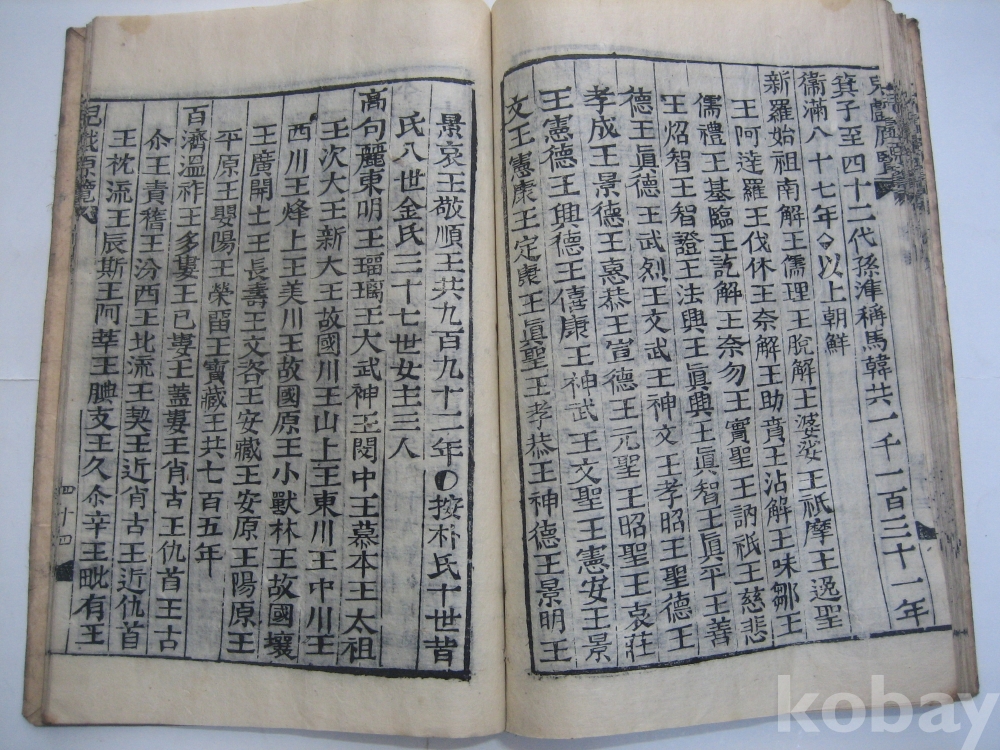 箕子至四十二代孫準稱馬韓共一千一百三十一年
衞滿八十七年◇以上朝鮮
新羅始祖南解王儒理王脫解王婆娑王祇摩王逸聖
王阿達羅王伐休王奈解王助賁王沾解王味鄒王
儒禮王基臨王訖解王奈勿王實聖王訥祇王慈悲
王炤智王智證王法興王眞興王眞智王眞平王善
德王眞德王武烈王文武王神文王孝昭王聖德王
孝成王景德王惠恭王宣德王元聖王昭聖王哀莊
王憲德王興德王僖康王神武王文聖王憲安王景
文王憲康王定康王眞聖王孝恭王神德王景明王
景哀王敬順王共九百九十二年○按朴氏十世昔
氏八世金氏三十七世女主三人
高句麗東明王瑠璃王大武神王閔中王慕本王太祖
王次大王新大王故國川王山上王東川王中川王
西川王烽上王美川王故國原王小獸林王故國壤
王廣開土王長壽王文咨王安臧王安原王陽原王
平原王嬰陽王榮留王寶臧王共七百五年
百濟溫祚王多婁王己婁王蓋婁王肖古王仇首王古
尒王責稽王汾西王北流王契王近肖古王近仇首
王枕流王辰斯王阿莘王腆支王久尒辛王毗有王
四十四
kobay